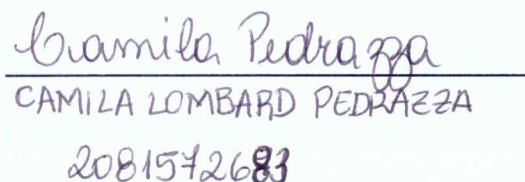 Camila Pedrazza
CAMILA LOMBARD PEDRAZZA
2081572683